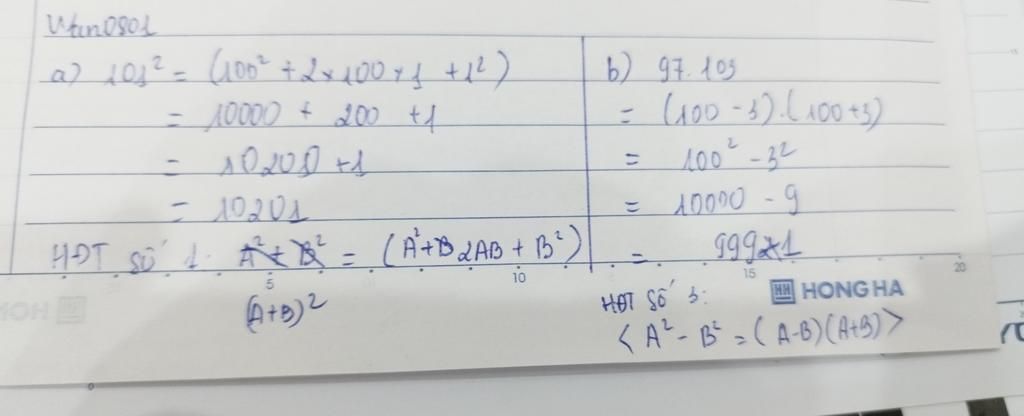 Utin0801
a) 101² = (100² + 2×100×1 + 1²)
= 10000 + 200 + 1
= 10200 + 1
= 10201
HĐT số 1: A² + B² = (A² + B 2AB + B²)
(A+B)²
b) 97.103
= (100 - 3).(100+3)
= 100² - 3²
= 10000 - 9
= 9991
HĐT số 3:
< A² - B² = (A-B)(A+B) >
5 10 15 20
HH HONG HA
0